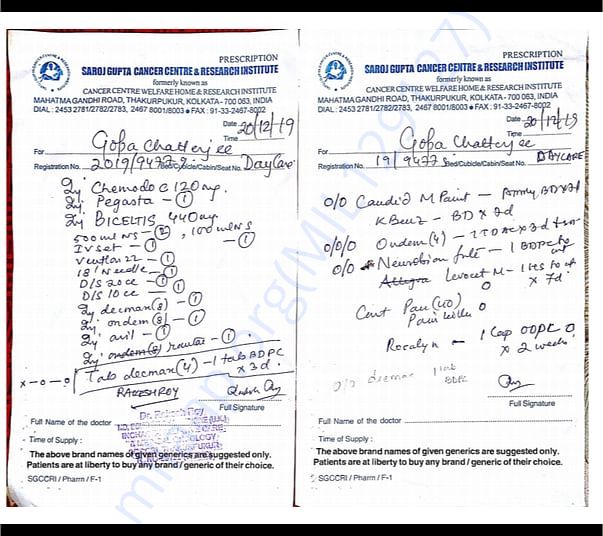 PRESCRIPTION
SAROJ GUPTA CANCER CENTRE & RESEARCH INSTITUTE
formerly known as
CANCER CENTRE WELFARE HOME & RESEARCH INSTITUTE
MAHATMA GANDHI ROAD, THAKURPUKUR, KOLKATA - 700 063, INDIA
DIAL : 2453 2781/2782/2783, 2467 8001/8003 ● FAX : 91-33-2467-8002
Date 20/12/19
Time
For Gopa Chatterjee
Registration No. 2019/9477 Bed/Cubicle/Cabin/Seat No. Daycare
Inj Chemodoc 120 mg.
Inj Pegasta - (1)
Inj BICELTIS 440mg
500 ml NS - (2), 100 ml NS - (1)
IV set - (1)
Venflon 22 - (1)
18 Needle - (1)
D/S 20cc - (1)
D/S 10cc - (1)
Inj decmax (8) - (1)
Inj ondem (8) - (1)
Inj avil - (1)
Inj ondem (8) - (1)
x-0-0 Tab decmax (4) - 1 tab BDPC
x 3d.
RAKESH ROY
Full Signature
Full Name of the doctor
Dr. Rakesh Roy
Time of Supply :
The above brand names of given generics are suggested only.
Patients are at liberty to buy any brand / generic of their choice.
SGCCRI / Pharm / F-1
PRESCRIPTION
SAROJ GUPTA CANCER CENTRE & RESEARCH INSTITUTE
formerly known as
CANCER CENTRE WELFARE HOME & RESEARCH INSTITUTE
MAHATMA GANDHI ROAD, THAKURPUKUR, KOLKATA - 700 063, INDIA
DIAL : 2453 2781/2782/2783, 2467 8001/8003 ● FAX : 91-33-2467-8002
Date 20/12/19
Time
For Gopa Chatterjee
Registration No. 19/9477 Bed/Cubicle/Cabin/Seat No. DAYCARE
0/0 Candid M Paint -
K Benz - BD x 7d
0/0/0 Ondem (4) - 1 TDAC x 3d
0/0 Neurobion forte - 1 BDPC
Allegra Levocet M - 1 HS
x 7d.
Cont Pan (40)
Rocalyn - 1 Cap ODPC
x 2 weeks
0/0 decmax 1 tab
BDPC
Full Signature
Full Name of the doctor
Time of Supply :
The above brand names of given generics are suggested only.
Patients are at liberty to buy any brand / generic of their choice.
SGCCRI / Pharm / F-1